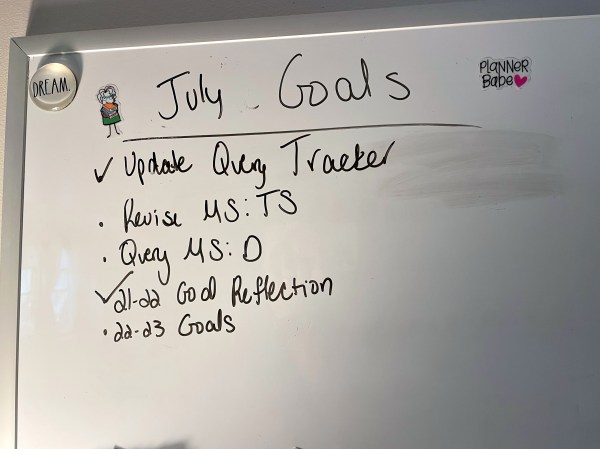 DREAM.
July Goals
PLANNER
Babe
✓ Update Query Tracker
• Revise MS: TS
• Query MS: D
✓ 21-22 Goal Reflection
• 22-23 Goals